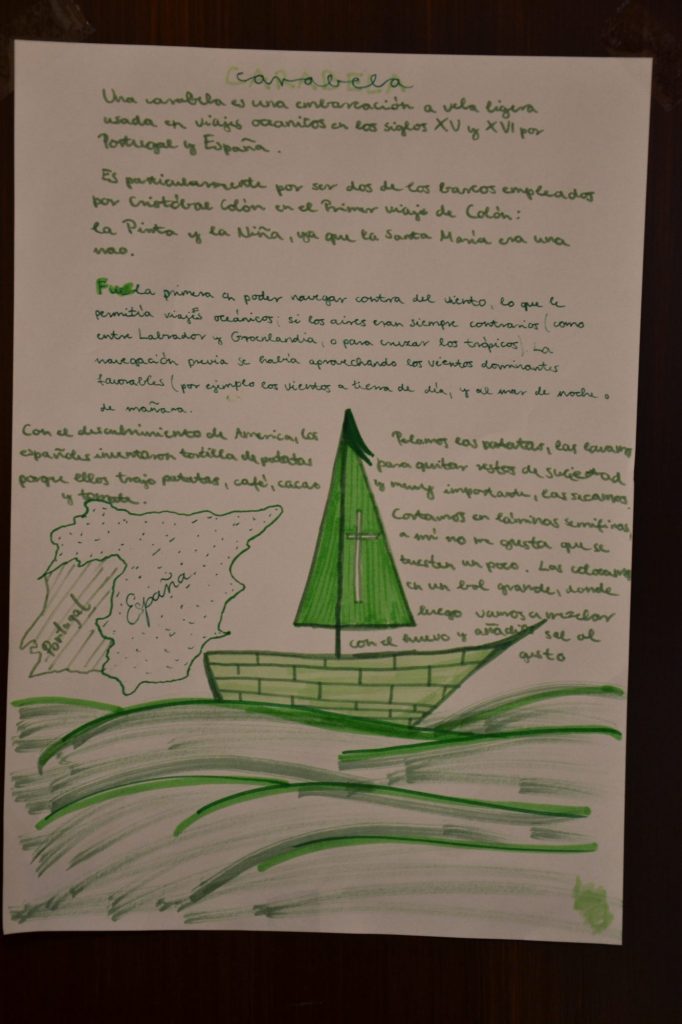 carabela
Una carabela es una embarcación a vela ligera
usada en viajes oceanicos en los siglos XV y XVI por
Portugal y España.
Es particularmente por ser dos de los barcos empleados
por Cristóbal Colón en el Primer viaje de Colón:
la Pinta y la Niña, ya que la Santa María era una
nao.
Fue la primera en poder navegar contra del viento, lo que le
permitía viajes oceánicos; si los aires eran siempre contrarios (como
entre Labrador y Groenlandia, o para cruzar los trópicos). La
navegación previa se había aprovechando los vientos dominantes
favorables (por ejemplo los vientos a tierra de día, y al mar de noche o
de mañana.
Con el descubrimiento de America, los
españoles inventaron tortilla de patatas
porque ellos trajo patatas, café, cacao
y tomate.
Pelamos las patatas, las lavamos
para quitar restos de suciedad
y muy importante, las secamos.
Cortamos en láminas semifinas,
a mí no me gusta que se
tuesten un poco. Las colocamos
en un bol grande, donde
luego vamos a mezclar
con el huevo y añadir sal al
gusto
España
Portugal